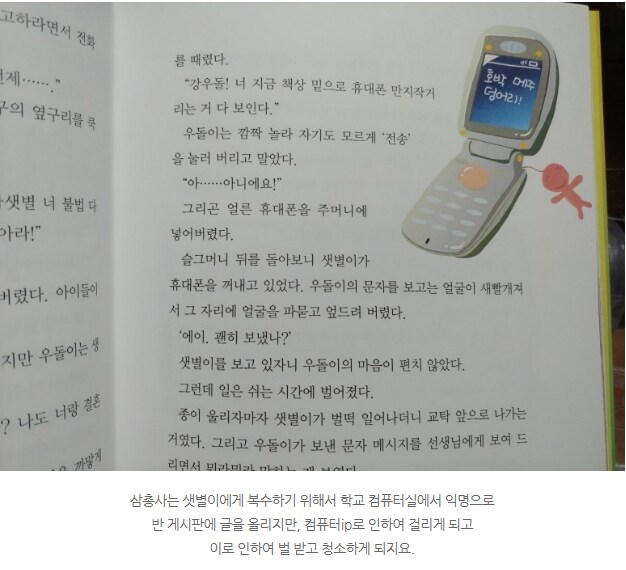 고하라면서 전화
를 때렸다.
"강우돌! 너 지금 책상 밑으로 휴대폰 만지작거
리는 거 다 보인다."
우돌이는 깜짝 놀라 자기도 모르게 '전송'
을 눌러 버리고 말았다.
"아……아니에요!"
그리곤 얼른 휴대폰을 주머니에
넣어버렸다.
슬그머니 뒤를 돌아보니 샛별이가
휴대폰을 꺼내고 있었다. 우돌이의 문자를 보고는 얼굴이 새빨개져
서 그 자리에 얼굴을 파묻고 엎드려 버렸다.
'에이. 괜히 보냈나?'
샛별이를 보고 있자니 우돌이의 마음이 편치 않았다.
그런데 일은 쉬는 시간에 벌어졌다.
종이 울리자마자 샛별이가 벌떡 일어나더니 교탁 앞으로 나가는
거였다. 그리고 우돌이가 보낸 문자 메시지를 선생님에게 보여 드
리면서
호박 메주
덩어리!
……."
구의 옆구리를 쿡
샛별 너 불법 다
아라!"
버렸다. 아이들이
지만 우돌이는 생
? 나도 너랑 결혼
까맣게
삼총사는 샛별이에게 복수하기 위해서 학교 컴퓨터실에서 익명으로
반 게시판에 글을 올리지만, 컴퓨터ip로 인하여 걸리게 되고
이로 인하여 벌 받고 청소하게 되지요.